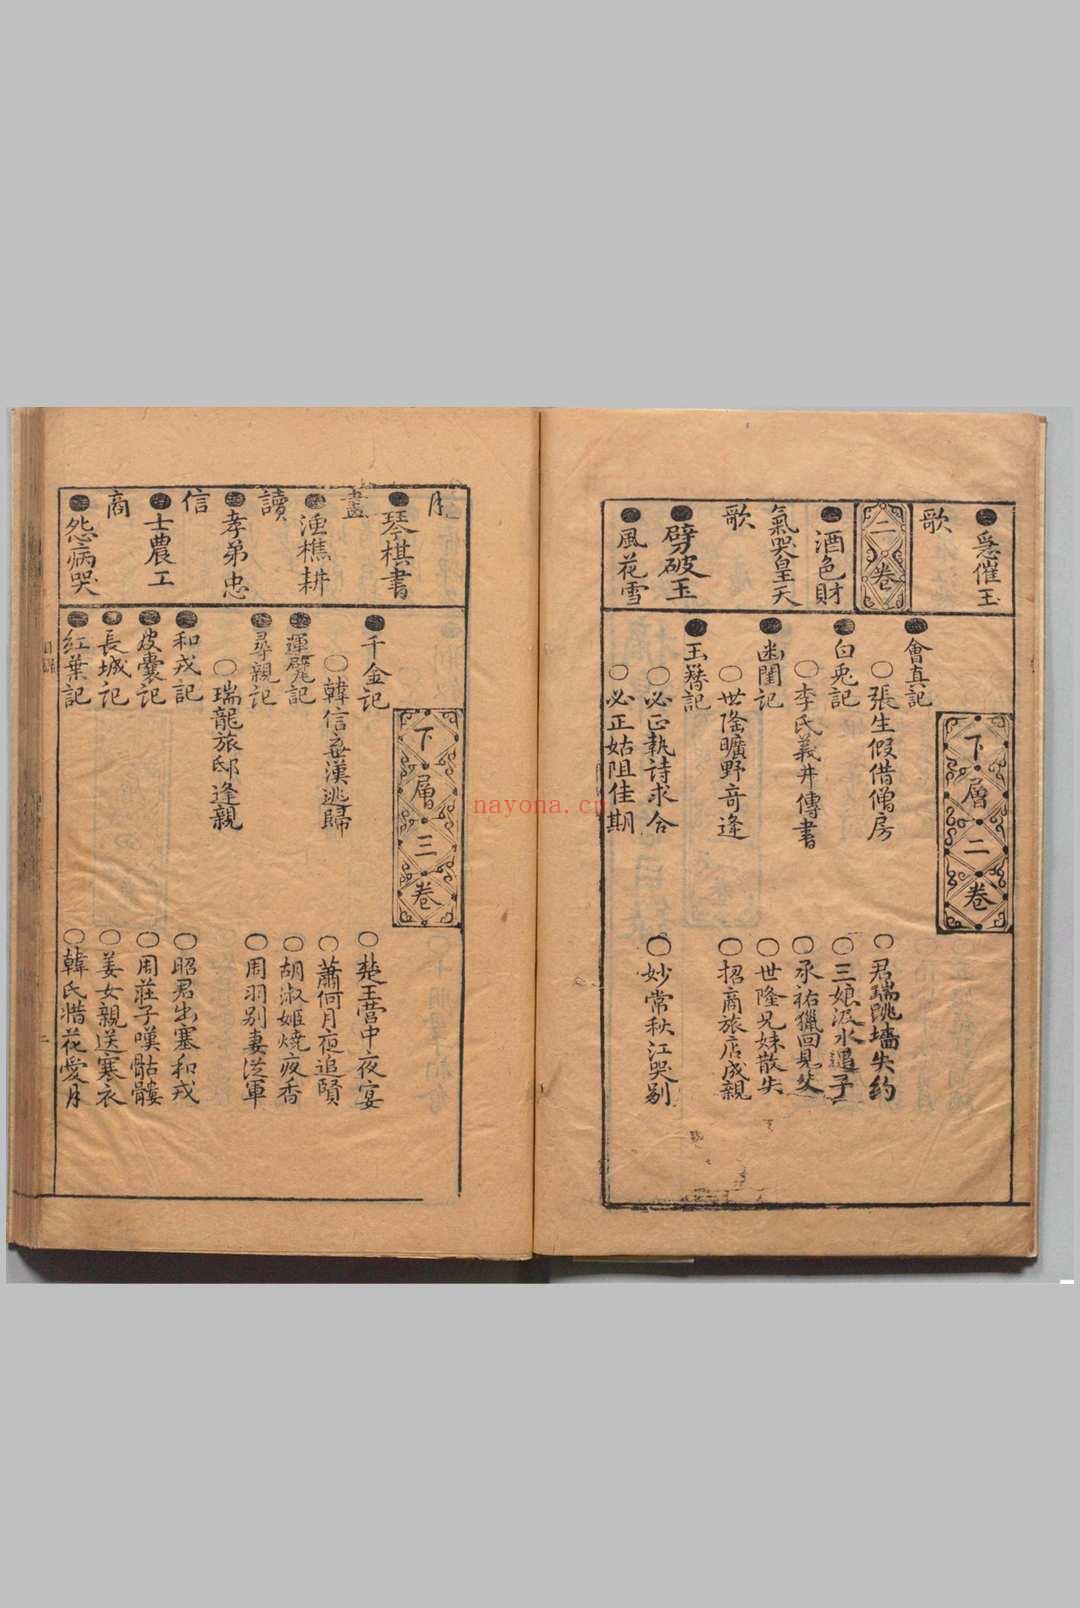 急催玉
歌
二卷
酒色財
氣哭皇天
歌
劈破玉
風花雪
下層二卷
會真記
張生假借僧房
君瑞跳墻失約
白兎記
三娘汲水遇子
李氏義井傳書
承祐獵回見父
幽閨記
世隆兄妹散失
世隆曠野竒逢
招商旅店成親
玉簪記
必正執詩求合
妙常秋江哭别
必正姑阻佳期
月
琴棋書
畵
漁樵耕
讀
孝弟忠
信
士農工
商
怨病哭
下層三卷
千金記
楚王营中夜宴
韓信弃漢逃歸
蕭何月夜追賢
運甓記
胡淑姬燒夜香
尋親記
周羽别妻从軍
瑞龍旅邸逢親
和戎記
昭君出塞和戎
皮囊記
周莊子嘆骷髏
長城記
姜女親送寒衣
紅葉記
韓氏惜花愛月
二
nayona.cn